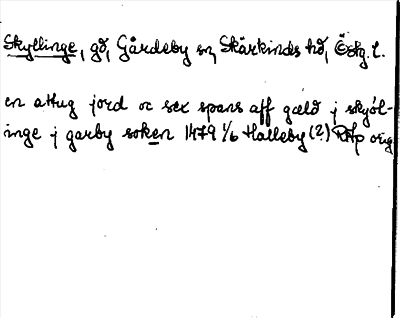 Skyllinge, gd, Gårdeby sn, Skärkinds hd, Östg. l.
en attug jord oc sex spans aff gæld j skyöl-
inge j garby soken 1479 1/6 Halleby (?) RAp orig.